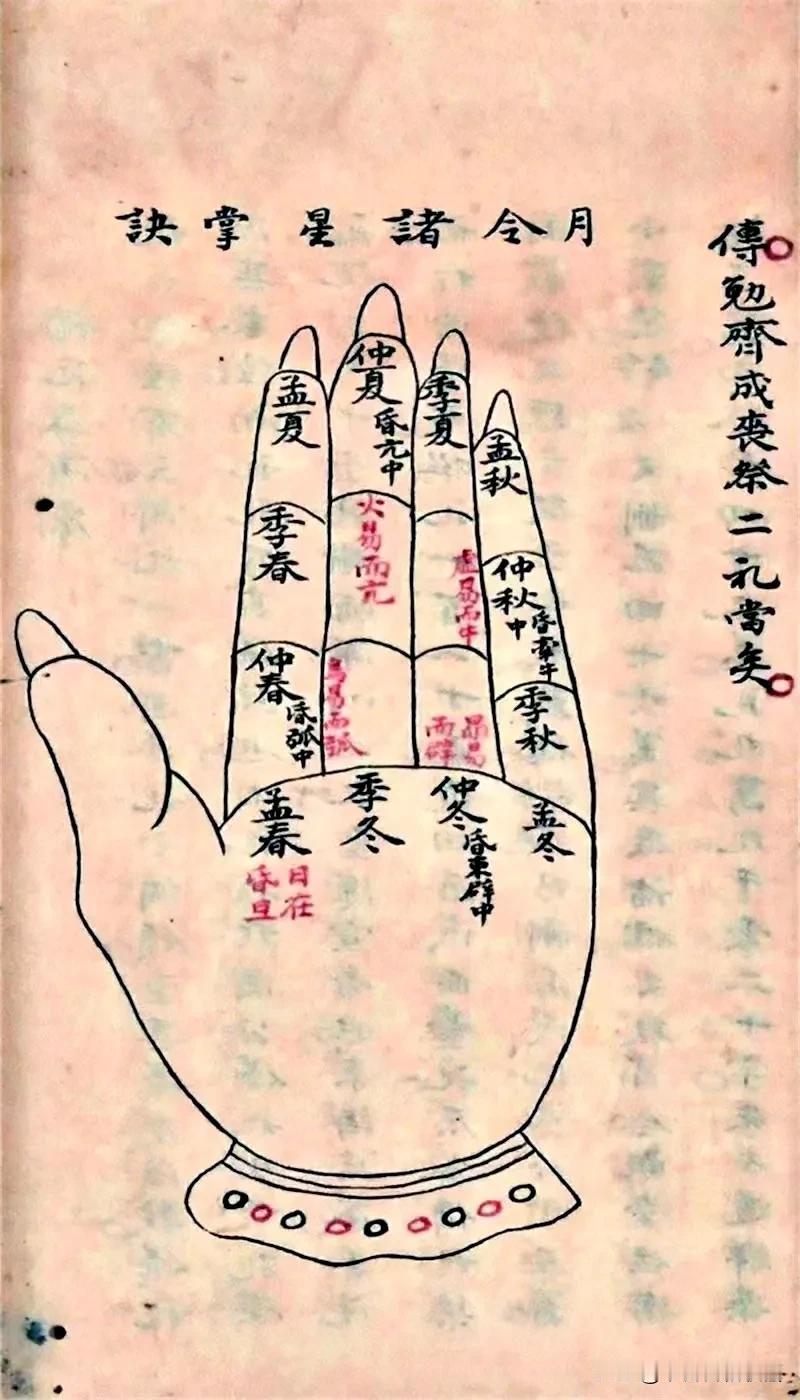 傳勉齊成喪祭二礼當矣
月令諸星掌訣
孟春
日在
昏旦
仲春
昏弧中
季春
孟夏
仲夏
昏亢中
季夏
孟秋
仲秋
昏牽牛
中
季秋
孟冬
仲冬
昏東辟中
季冬
火易而亢
鳥易而弧
虛易而牛
昴易
而辟